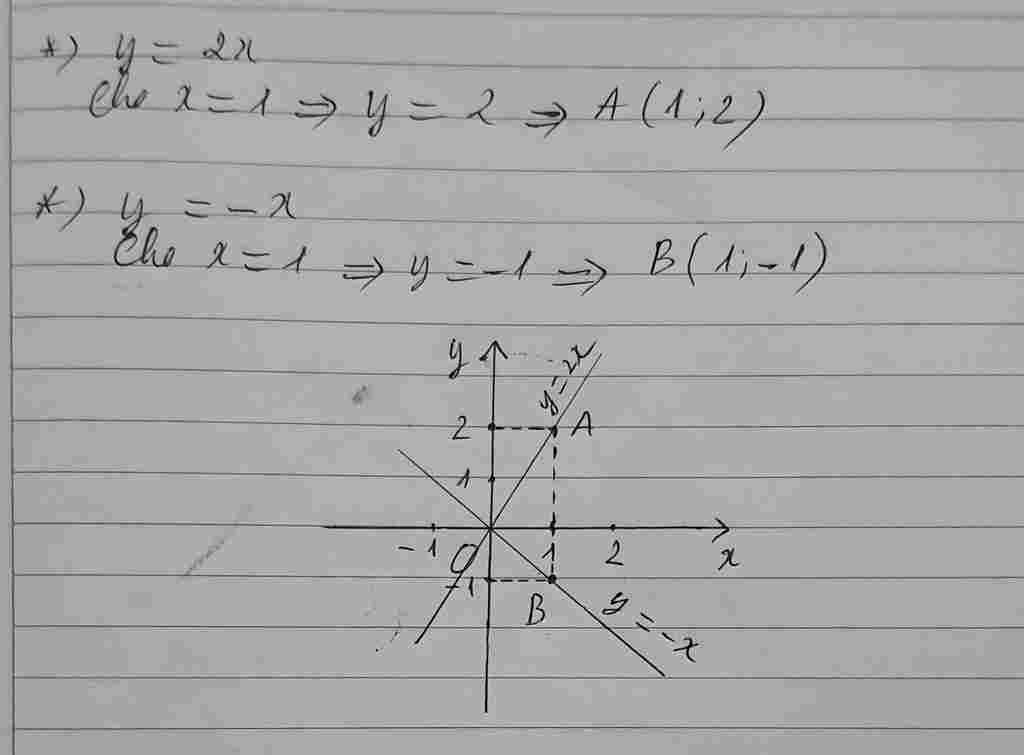 *) y = 2x
Cho x = 1 ⇒ y = 2 ⇒ A(1;2)
*) y = -x
Cho x = 1 ⇒ y = -1 ⇒ B(1;-1)
y
y = 2x
2
A
1
-1
O
1
2
x
-1
B
y = -x